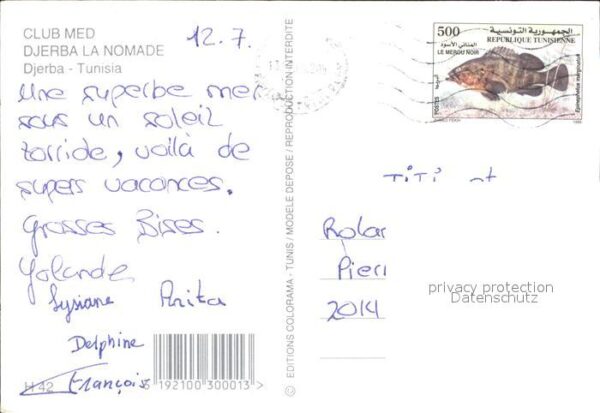 CLUB MED
DJERBA LA NOMADE
Djerba - Tunisia
12.7.
Une superbe mer
sous un soleil
torride, voilà de
supers vacances.
Grosses Bises.
Yolande
Lysiane Anita
Delphine
François
H 42
6 192100 300013 >
© EDITIONS COLORAMA - TUNIS / MODELE DEPOSE / REPRODUCTION INTERDITE
500
الجمهورية التونسية
REPUBLIQUE TUNISIENNE
المناني الأسود
LE MEROU NOIR
البريد
POSTES
Epinephelus marginatus
TiTi et
Rolar
Pierr
2014
privacy protection
Datenschutz